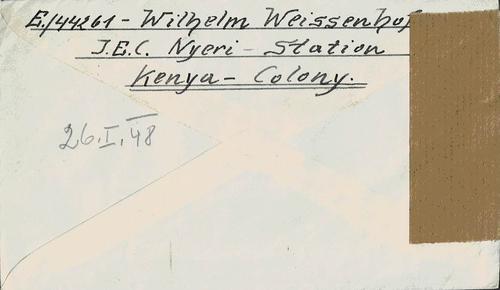 E/44261 - Wilhelm Weissenhof
I.E.C. Nyeri - Station
Kenya - Colony.
26.I.48